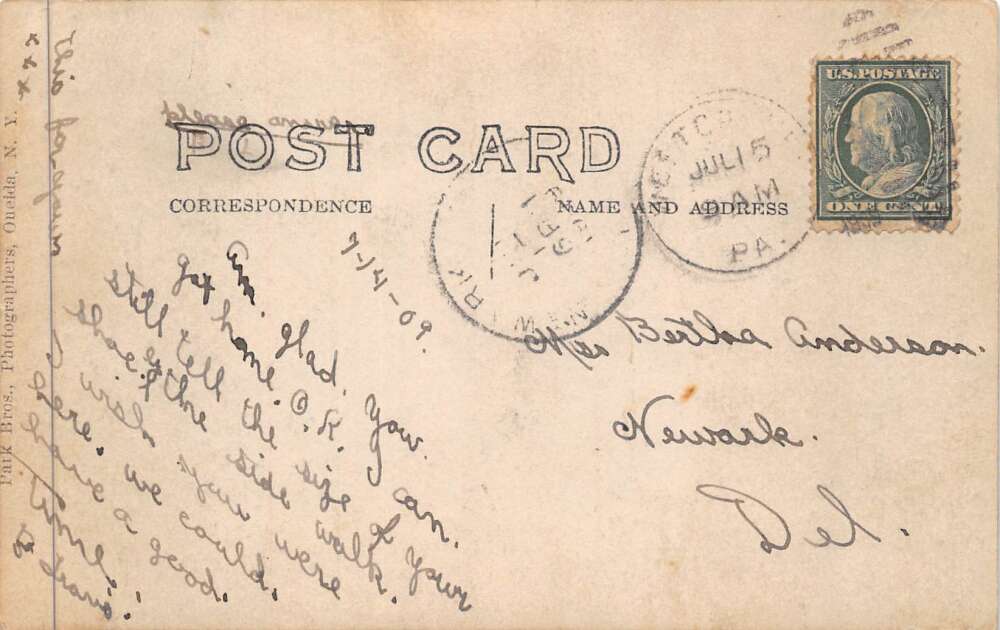 U.S. POSTAGE
ONE CENT
POST CARD
CORRESPONDENCE
NAME AND ADDRESS
JUL 15
AM
PA.
NEWARK
7-14-09.
Am Glad. You
got home O.K.
Still tell the size of your
shoe on the side walk.
I wish you were
here. we could.
have a good.
time.
Miss Bertha Anderson.
Newark.
Del.
this for
x x x
Park Bros., Photographers, Oneida, N. Y.